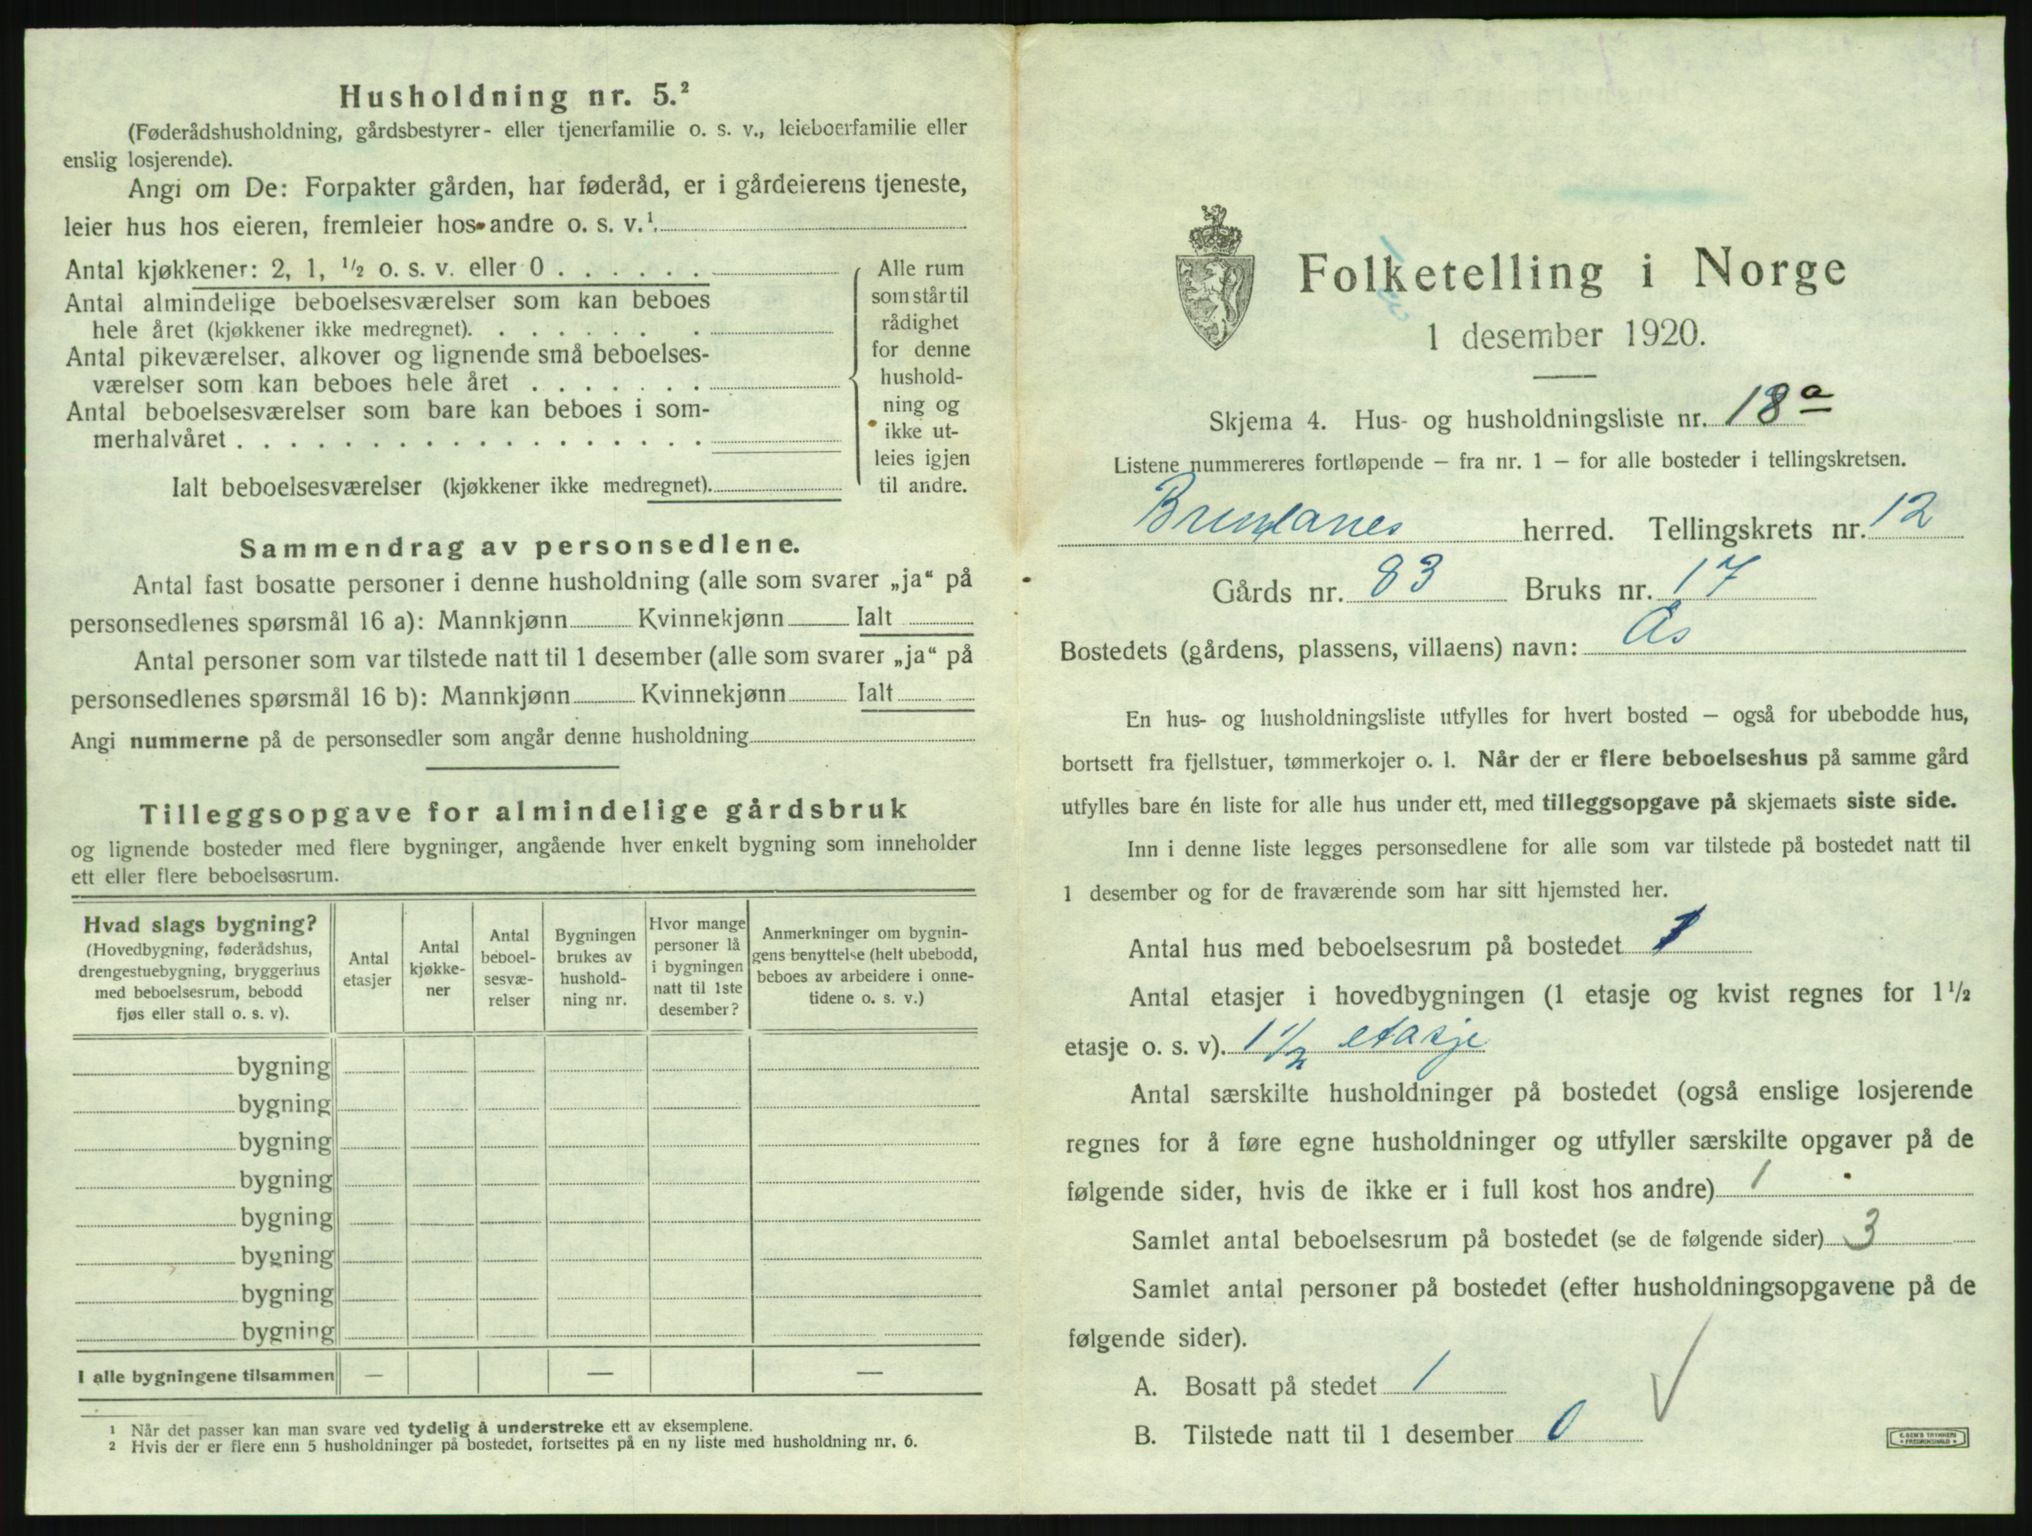 Husholdning nr. 5.²
(Føderådshusholdning, gårdsbestyrer- eller tjenerfamilie o. s. v., leieboerfamilie eller
enslig losjerende).
Angi om De: Forpakter gården, har føderåd, er i gårdeierens tjeneste,
leier hus hos eieren, fremleier hos andre o. s. v.¹
Antal kjøkkener: 2, 1, ½ o. s. v. eller 0 . . . . . .
Antal almindelige beboelsesværelser som kan beboes
hele året (kjøkkener ikke medregnet). . . . . . . .
Antal pikeværelser, alkover og lignende små beboelses-
værelser som kan beboes hele året . . . . . . .
Antal beboelsesværelser som bare kan beboes i som-
merhalvåret . . . . . . . . . . . . . . . . . .
Ialt beboelsesværelser (kjøkkener ikke medregnet).
Alle rum
som står til
rådighet
for denne
hushold-
ning og
ikke ut-
leies igjen
til andre.
Sammendrag av personsedlene.
Antal fast bosatte personer i denne husholdning (alle som svarer „ja“ på
personsedlenes spørsmål 16 a): Mannkjønn Kvinnekjønn Ialt
Antal personer som var tilstede natt til 1 desember (alle som svarer „ja“ på
personsedlenes spørsmål 16 b): Mannkjønn Kvinnekjønn Ialt
Angi nummerne på de personsedler som angår denne husholdning
Tilleggsopgave for almindelige gårdsbruk
og lignende bosteder med flere bygninger, angående hver enkelt bygning som inneholder
ett eller flere beboelsesrum.
Hvad slags bygning?
(Hovedbygning, føderådshus,
drengestuebygning, bryggerhus
med beboelsesrum, bebodd
fjøs eller stall o. s. v).
Antal
etasjer
Antal
kjøkke-
ner
Antal
beboel-
sesvæ-
relser
Bygningen
brukes av
hushold-
ning nr.
Hvor mange
personer lå
i bygningen
natt til 1ste
desember?
Anmerkninger om bygnin-
gens benyttelse (helt ubebodd,
beboes av arbeidere i onne-
tidene o. s. v.)
bygning
bygning
bygning
bygning
bygning
bygning
bygning
bygning
I alle bygningene tilsammen — — —
¹ Når det passer kan man svare ved tydelig å understreke ett av eksemplene.
² Hvis der er flere enn 5 husholdninger på bostedet, fortsettes på en ny liste med husholdning nr. 6.
Folketelling i Norge
1 desember 1920.
Skjema 4. Hus- og husholdningsliste nr. 18 a
Listene nummereres fortløpende – fra nr. 1 – for alle bosteder i tellingskretsen.
Brunlanes herred. Tellingskrets nr. 12
Gårds nr. 83 Bruks nr. 17
Bostedets (gårdens, plassens, villaens) navn: Ås
En hus- og husholdningsliste utfylles for hvert bosted – også for ubebodde hus,
bortsett fra fjellstuer, tømmerkojer o. l. Når der er flere beboelseshus på samme gård
utfylles bare én liste for alle hus under ett, med tilleggsopgave på skjemaets siste side.
Inn i denne liste legges personsedlene for alle som var tilstede på bostedet natt til
1 desember og for de fraværende som har sitt hjemsted her.
Antal hus med beboelsesrum på bostedet 1
Antal etasjer i hovedbygningen (1 etasje og kvist regnes for 1½
etasje o. s. v). 1½ etasje
Antal særskilte husholdninger på bostedet (også enslige losjerende
regnes for å føre egne husholdninger og utfyller særskilte opgaver på de
følgende sider, hvis de ikke er i full kost hos andre) 1
Samlet antal beboelsesrum på bostedet (se de følgende sider) 3
Samlet antal personer på bostedet (efter husholdningsopgavene på de
følgende sider).
A. Bosatt på stedet 1
B. Tilstede natt til 1 desember 0